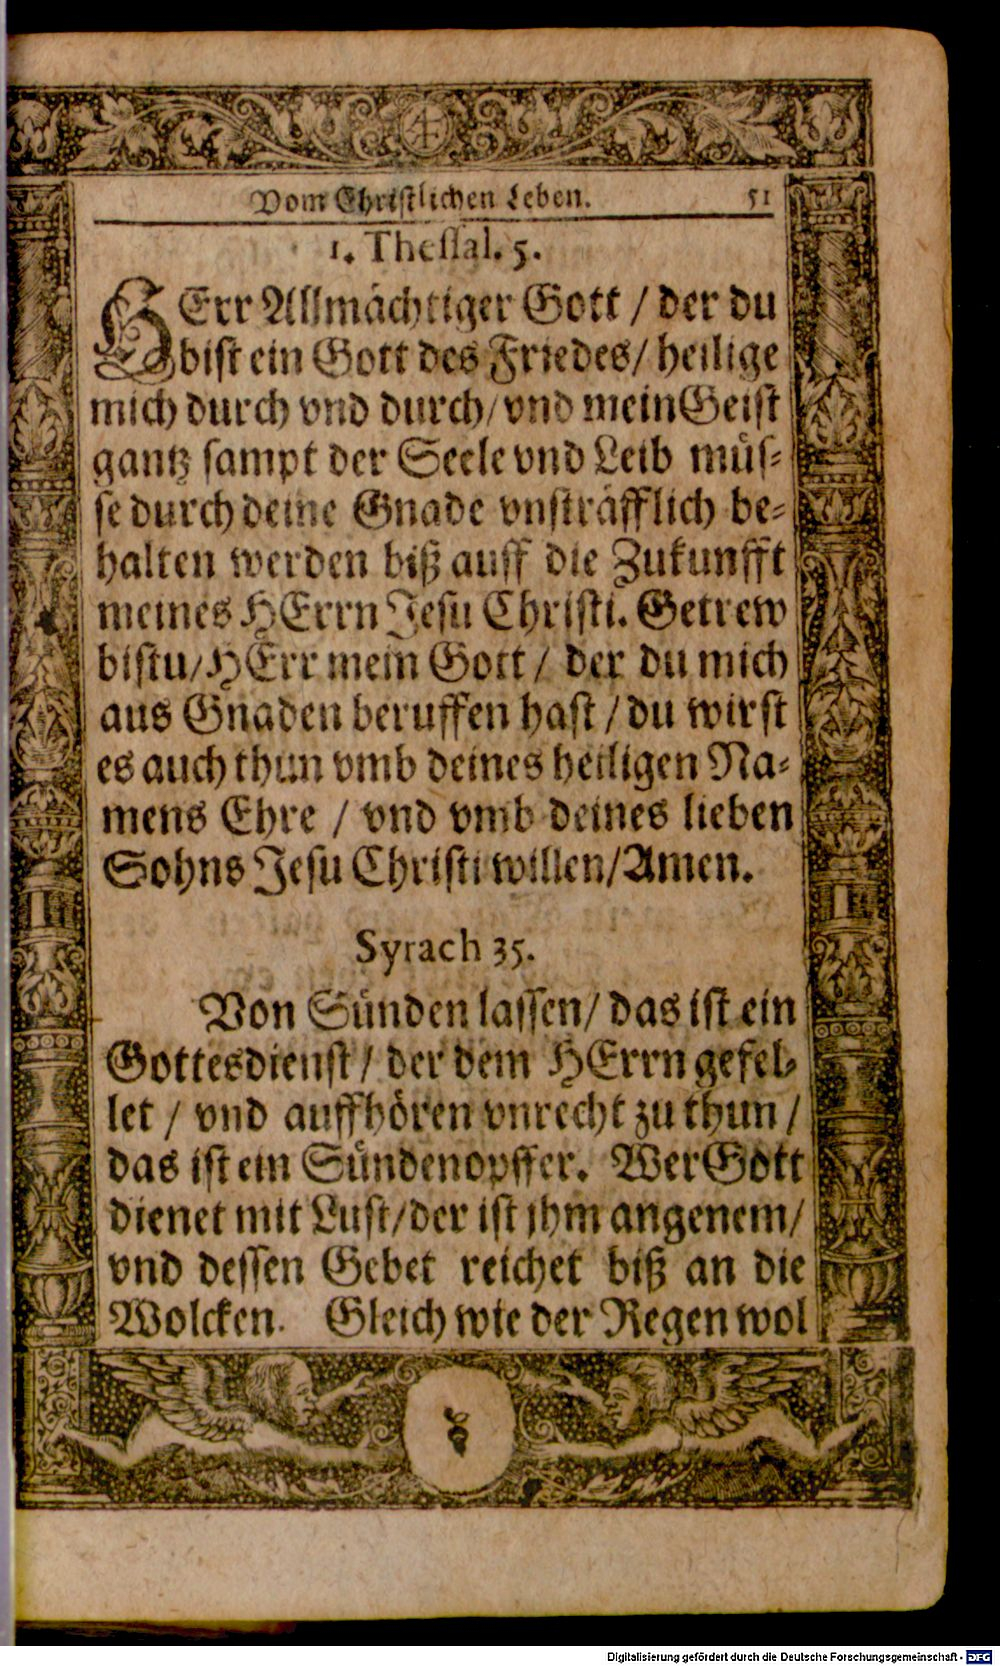 Vom Christlichen Leben. 51
1. Thessal. 5.
HErr Allmächtiger Gott / der du
bist ein Gott des Friedes / heilige
mich durch vnd durch / vnd mein Geist
gantz sampt der Seele vnd Leib müs-
se durch deine Gnade vnsträfflich be-
halten werden biß auff die Zukunfft
meines HErrn Jesu Christi. Getrew
bistu / HErr mein Gott / der du mich
aus Gnaden beruffen hast / du wirst
es auch thun vmb deines heiligen Na-
mens Ehre / vnd vmb deines lieben
Sohns Jesu Christi willen / Amen.
Syrach 35.
Von Sünden lassen / das ist ein
Gottesdienst / der dem HErrn gefel-
let / vnd auffhören vnrecht zu thun /
das ist ein Sündenopffer. Wer Gott
dienet mit Lust / der ist jhm angenem /
vnd dessen Gebet reichet biß an die
Wolcken. Gleich wie der Regen wol
Digitalisierung gefördert durch die Deutsche Forschungsgemeinschaft - DFG